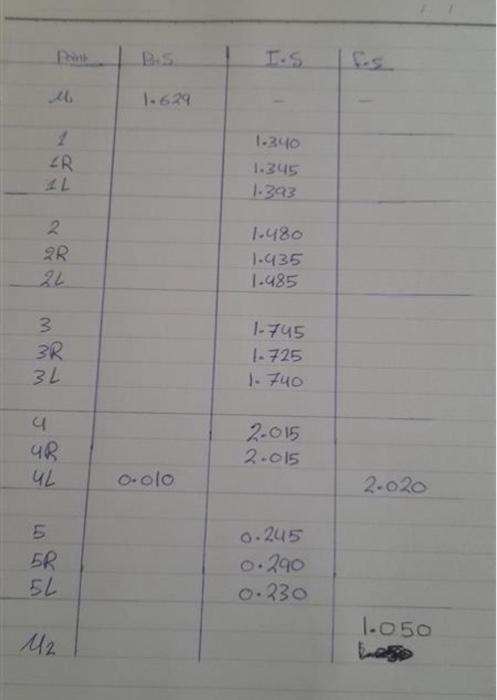 Point B.S I.S F.S
M1 1.629 - -
1 1.340
1R 1.345
1L 1.393
2 1.480
2R 1.435
2L 1.485
3 1.745
3R 1.725
3L 1.740
4 2.015
4R 2.015
4L 0.010 2.020
5 0.245
5R 0.290
5L 0.230
1.050
M2